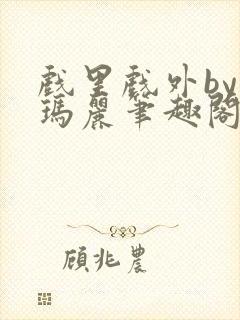 戲里戲外by
瑪麗筆趣閣
顧兆農